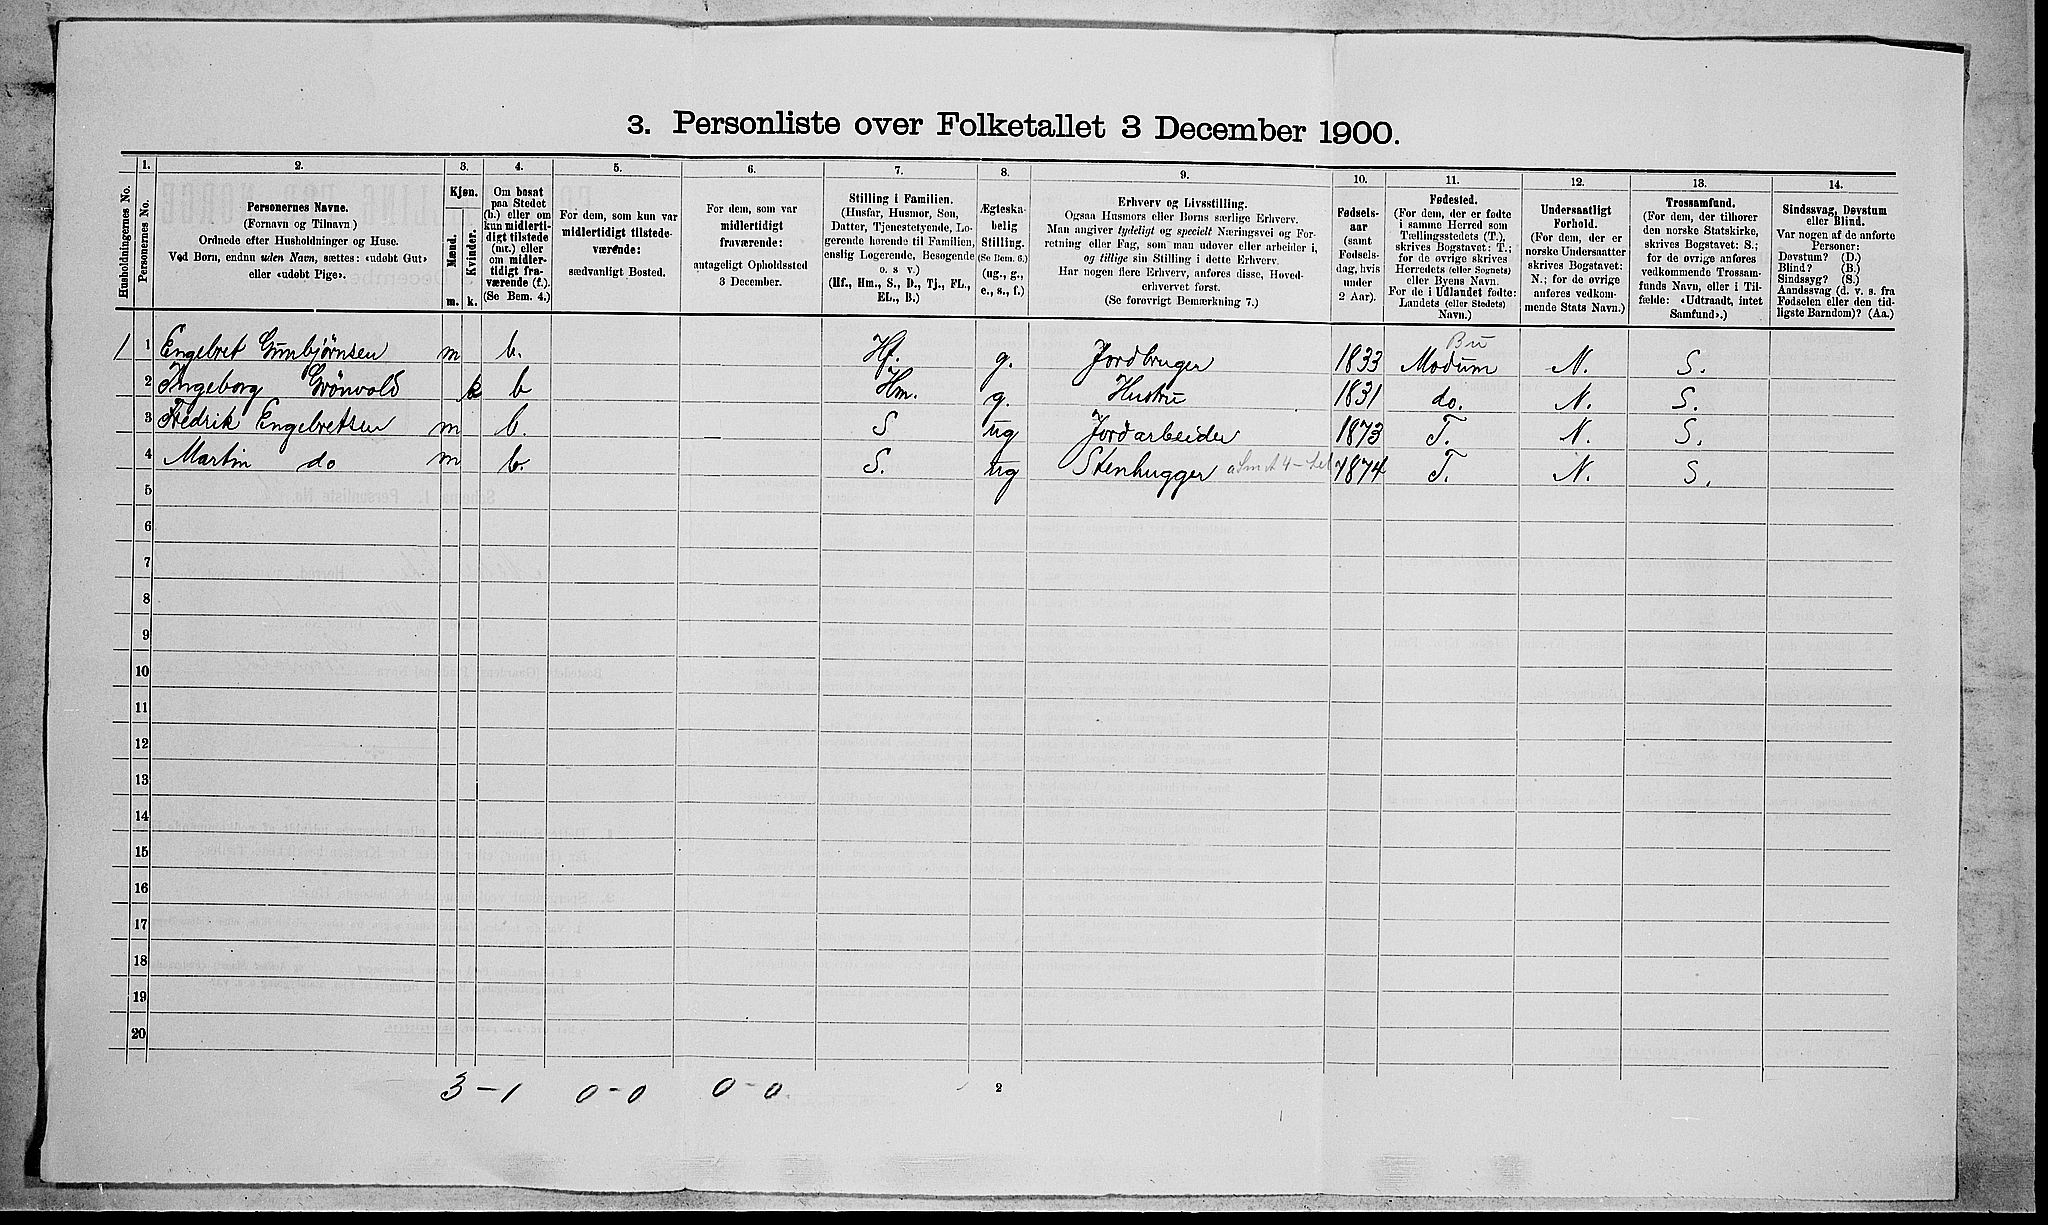 3. Personliste over Folketallet 3 December 1900.
1. 2. 3. 4. 5. 6. 7. 8. 9. 10. 11. 12. 13. 14.
Husholdningernes No.
Personernes No.
Personernes Navne.
(Fornavn og Tilnavn)
Ordnede efter Husholdninger og Huse.
Ved Børn, endnu uden Navn, sættes: «udøbt Gut»
eller «udøbt Pige».
Kjøn.
Mænd.
Kvinder.
m. k.
Om bosat
paa Stedet
(b.) eller om
kun midlerti-
digt tilstede
(mt.) eller
om midler-
tidigt fra-
værende (f.).
(Se Bem. 4.)
For dem, som kun var
midlertidigt tilstede-
værende:
sædvanligt Bosted.
For dem, som var
midlertidigt
fraværende:
antageligt Opholdssted
3 December.
Stilling i Familien.
(Husfar, Husmor, Søn,
Datter, Tjenestetyende, Lo-
gerende hørende til Familien,
enslig Logerende, Besøgende
o. s. v.)
(Hf., Hm., S., D., Tj., FL.,
EL., B.)
Ægteska-
belig
Stilling.
(Se Bem. 6.)
(ug., g.,
e., s., f.)
Erhverv og Livsstilling.
Ogsaa Husmors eller Børns særlige Erhverv.
Man angiver tydeligt og specielt Næringsvei og For-
retning eller Fag, som man udøver eller arbeider i,
og tillige sin Stilling i dette Erhverv.
Har nogen flere Erhverv, anføres disse, Hoved-
erhvervet først.
(Se forøvrigt Bemærkning 7.)
Fødsels-
aar
(samt
Fødsels-
dag, hvis
under
2 Aar).
Fødested.
(For dem, der er fødte
i samme Herred som
Tællingsstedets (T.),
skrives Bogstavet: T.;
for de øvrige skrives
Herredets (eller Sognets)
eller Byens Navn.
For de i Udlandet fødte:
Landets (eller Stedets)
Navn.)
Undersaatligt
Forhold.
(For dem, der er
norske Undersaatter
skrives Bogstavet:
N.; for de øvrige
anføres vedkom-
mende Stats Navn.)
Trossamfund.
(For dem, der tilhører
den norske Statskirke,
skrives Bogstavet: S.;
for de øvrige anføres
vedkommende Trossam-
funds Navn, eller i Til-
fælde: «Udtraadt, intet
Samfund».)
Sindssvag, Døvstum
eller Blind.
Var nogen af de anførte
Personer:
Døvstum? (D.)
Blind? (B.)
Sindssyg? (S.)
Aandssvag (d. v. s. fra
Fødselen eller den tid-
ligste Barndom)? (Aa.)
Bu
1 1 Engebret Gunbjørnsen m b. Hf. g. Jordbruger 1833 Modum N. S.
2 Ingeborg Grönvold k b Hm. g. Hustru 1831 do. N. S.
3 Fredrik Engebretsen m b. S ug Jordarbeider 1873 T. N. S.
4 Martin do m b. S. ug Stenhugger 1874 T. N. S.
5
6
7
8
9
10
11
12
13
14
15
16
17
18
19
20
3 - 1 0 - 0 0 - 0
2